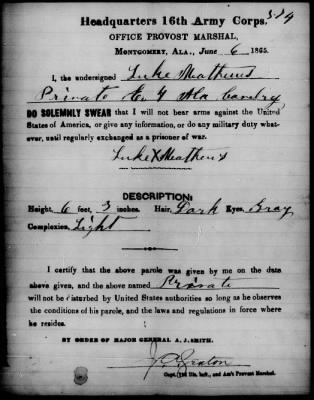 524
Headquarters 16th Army Corps,
OFFICE PROVOST MARSHAL,
MONTGOMERY, ALA., June 6 1865.
I, the undersigned Luke Meathews
Private Co. G Ala Cavdry
DO SOLEMNLY SWEAR that I will not bear arms against the United
States of America, or give any information, or do any military duty what-
ever, until regularly exchanged as a prisoner of war.
Luke X Meathews
DESCRIPTION:
Height, 6 feet, 3 inches. Hair, Dark Eyes, Gray
Complexion, Light
I certify that the above parole was given by me on the date
above given, and the above named Private
will not be disturbed by United States authorities so long as he observes
the conditions of his parole, and the laws and regulations in force where
he resides.
BY ORDER OF MAJOR GENERAL A. J. SMITH.
Capt. Inft., and Ass't Provost Marshal.